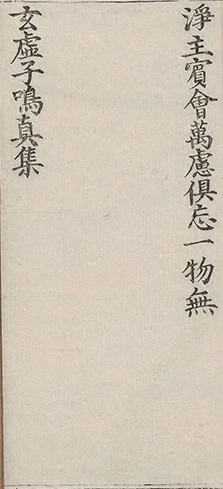 淨主賓會萬慮俱忘一物無
玄虛子鳴真集